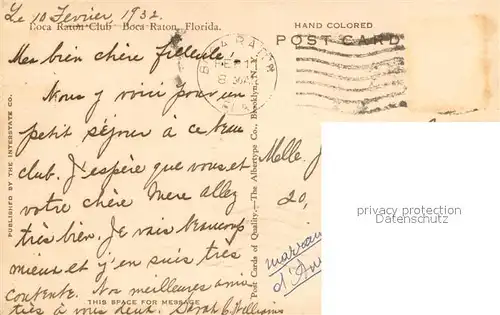 Le 10 Fevrier, 1932.
Boca Raton Club Boca Raton, Florida.
HAND COLORED
POST CARD
Ma bien chère filleule.
Nous y voici pour un
petit séjour à ce beau
club. J'espère que vous et
votre chère Mere allez
très bien. Je vais beaucoup
mieux et j'en suis très
contente. Nos meilleures amitiés
THIS SPACE FOR MESSAGE
à vous deux. Sarah C. Williams
PUBLISHED BY THE INTERSTATE CO.
Post Cards of Quality.—The Albertype Co., Brooklyn, N. Y.
BOCA RATON
FEB 1
8
FLA
Melle. J
20,
marrain
d'
privacy protection
Datenschutz